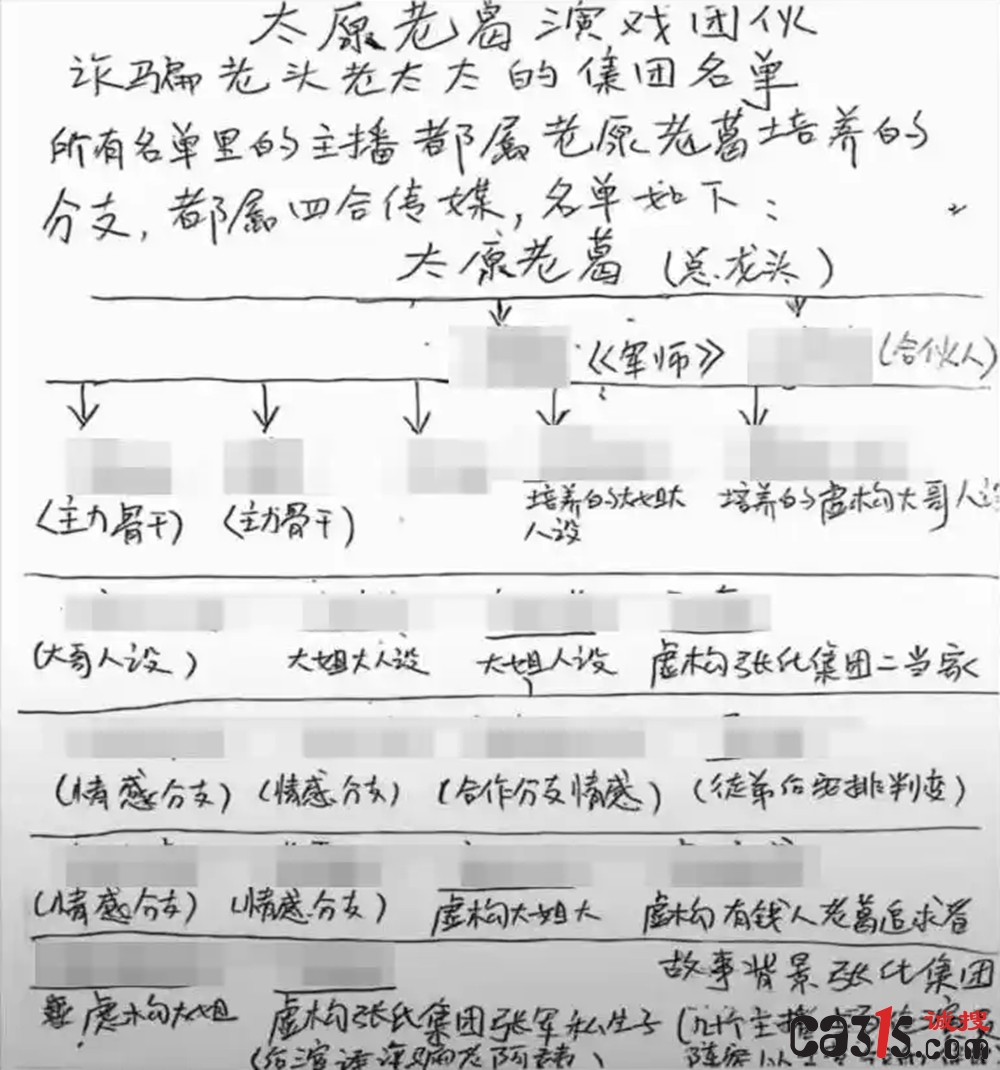 太原老葛演戏团伙
诈骗老头老太太的集团名单
所有名单里的主播都属老原老葛培养的
分支，都属四合传媒，名单如下：
太原老葛（总龙头）
《军师》 （合伙人）
（主力骨干） （主力骨干） 培养的大姐大人设 培养的虚构大哥人设
（大哥人设） 大姐大人设 大姐人设 虚构张氏集团二当家
（情感分支） （情感分支） （合作分支情感） （徒弟后安排判变）
（情感分支） （情感分支） 虚构大姐大 虚构有钱人老葛追求者
故事背景张氏集团
虚构大姐 虚构张氏集团张军私生子
ca315.com 诚搜